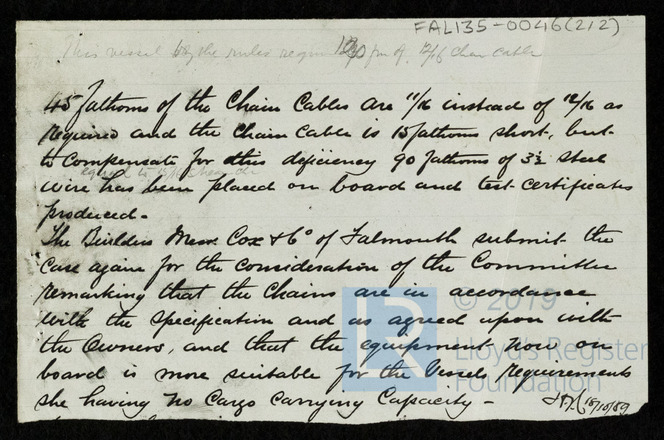 FAL135-0046(212)
This vessel by the rules requires 120 fms of 12/16 chain cable
45 fathoms of the Chain Cables are 11/16 instead of 12/16 as
required and the Chain Cable is 15 fathoms short, but
to compensate for this deficiency 90 fathoms of 3½ steel
equal to
wire has been placed on board and test certificates
produced.
The Builders Messrs Cox & Co of Falmouth submit the
case again for the consideration of the Committee
remarking that the Chains are in accordance
with the specification and as agreed upon with
the Owners, and that the equipment now on
board is more suitable for the Vessels requirements
she having no Cargo Carrying Capacity -
18/10/89
© 2019
Lloyd's Register
Foundation